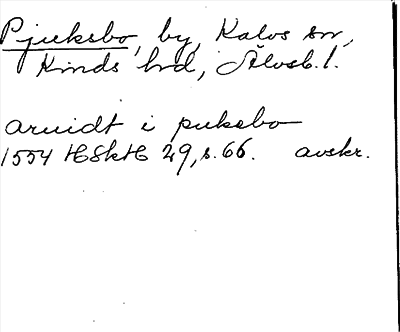 Pjuksbo, by, Kalvs sn,
Kinds hd, Älvsb. l.
aruidt i puksbo
1554 HSkH 29, s. 66. avskr.